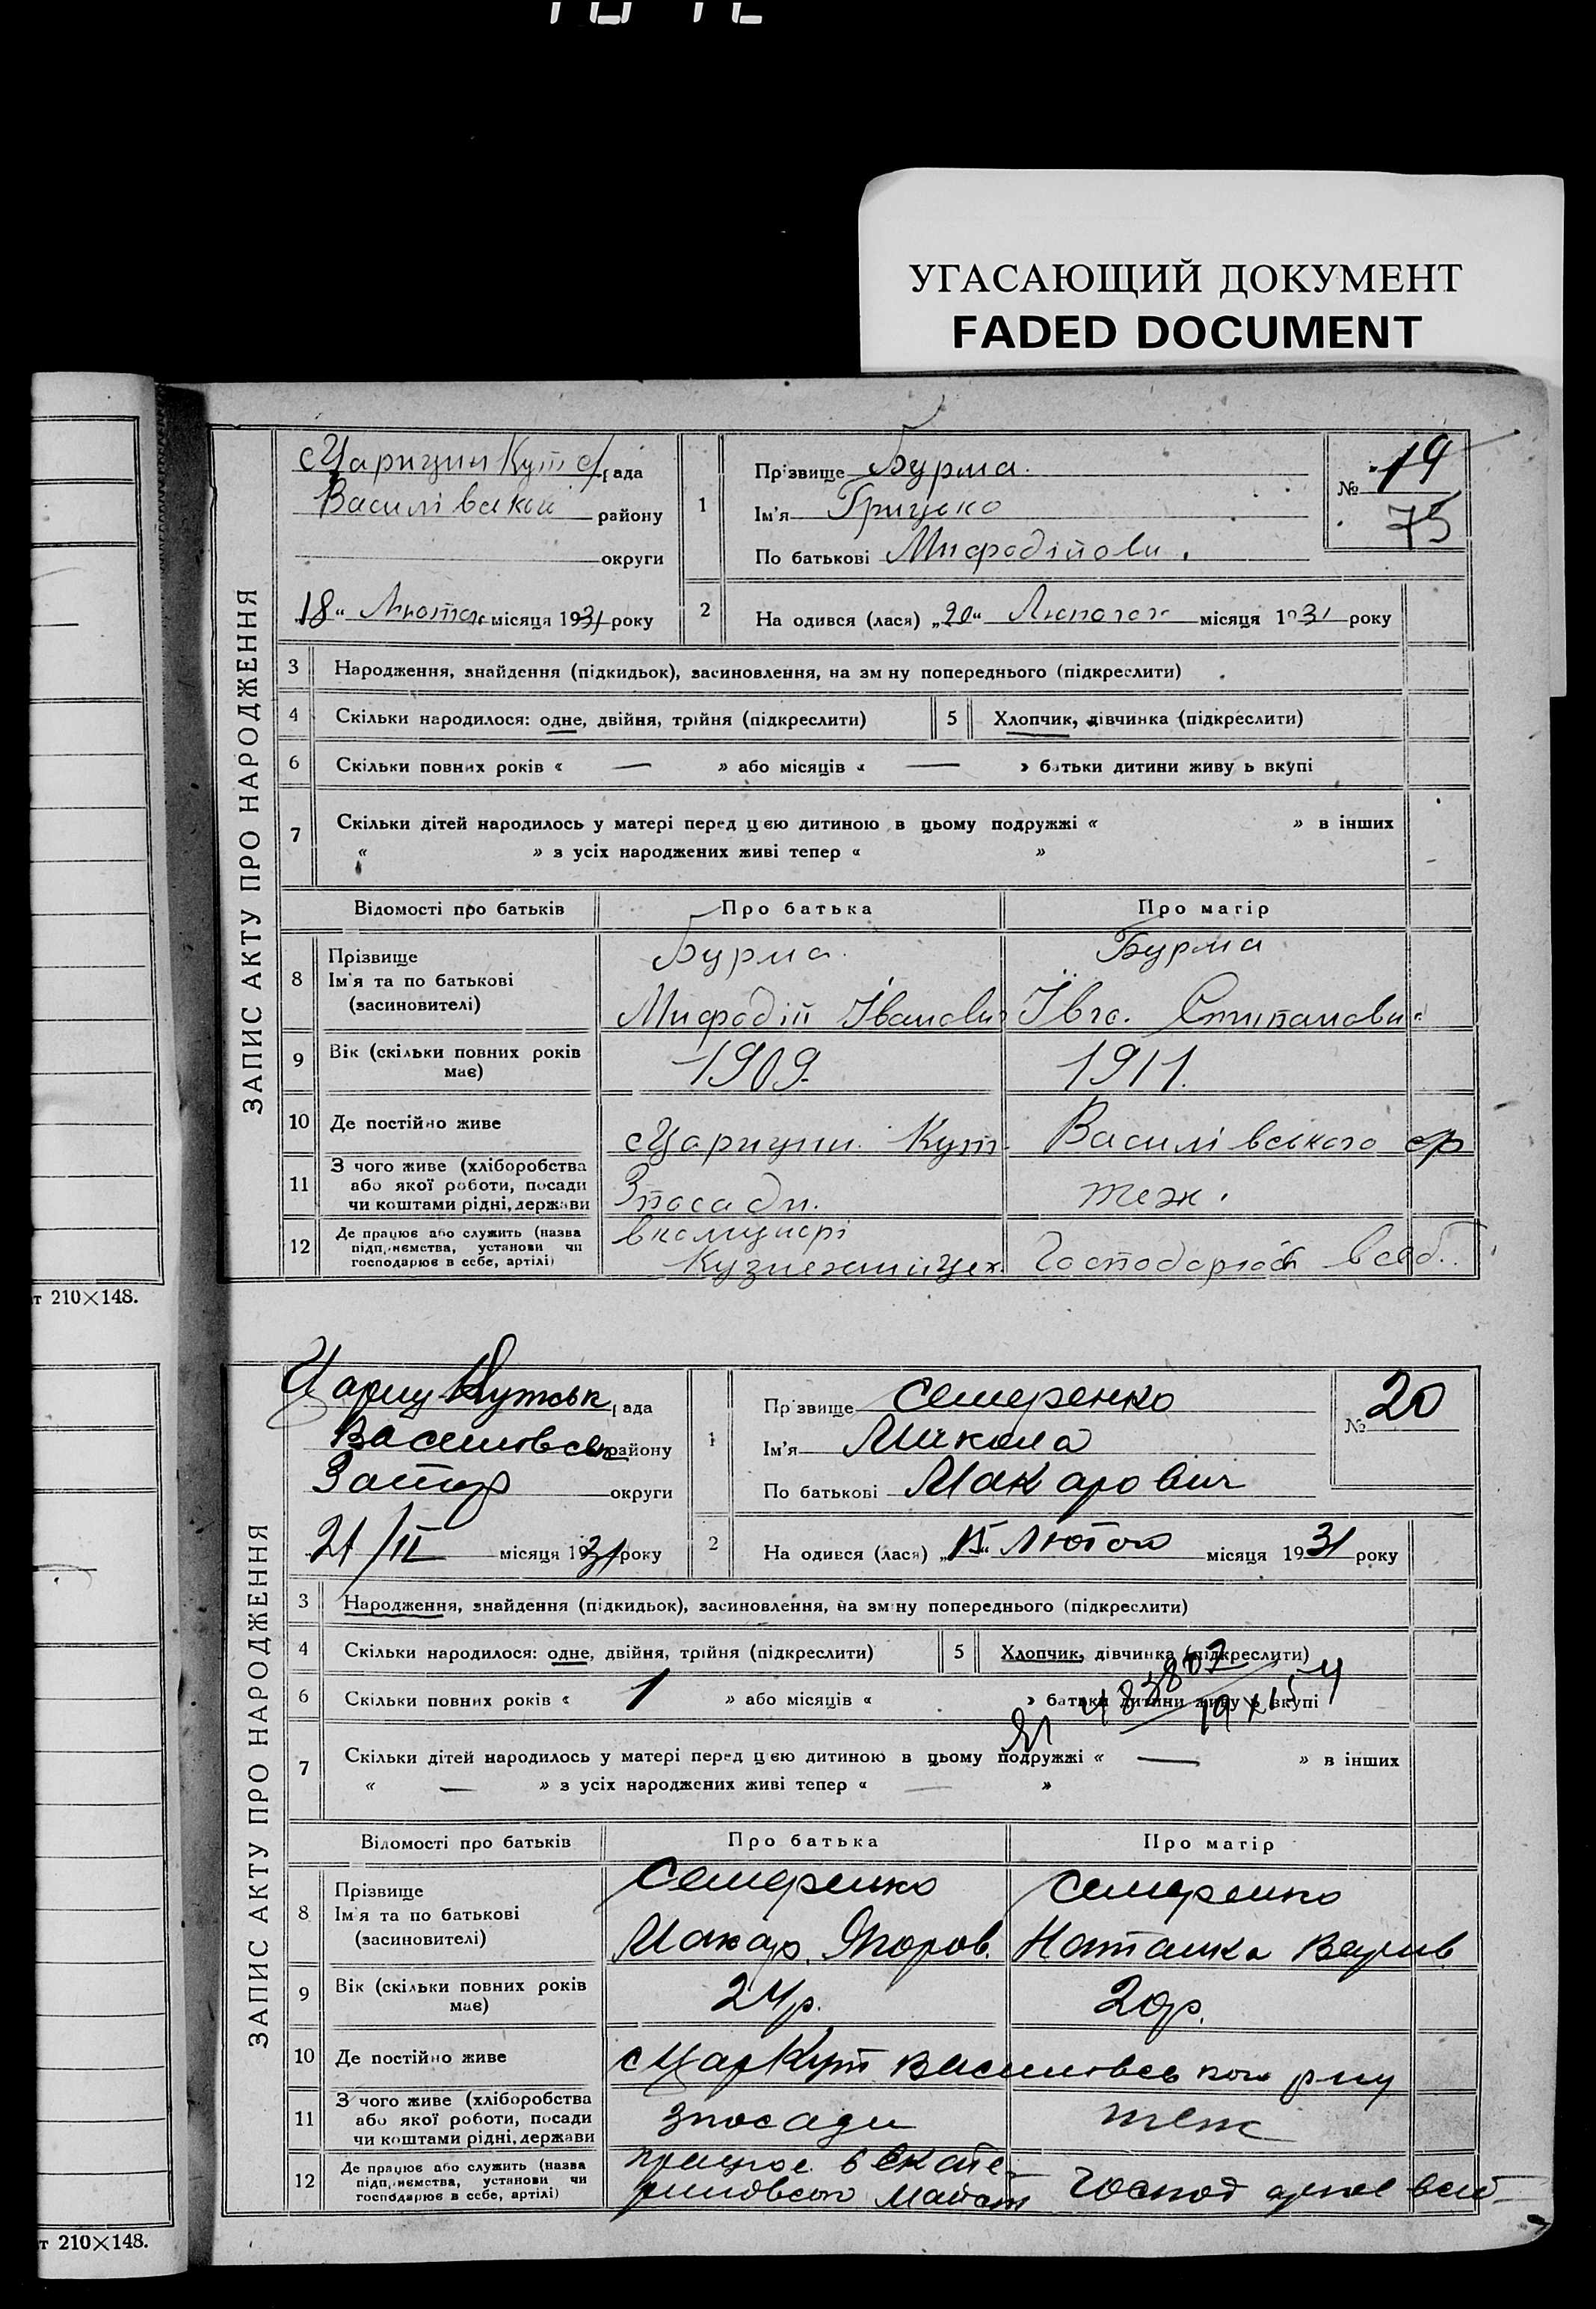 УГАСАЮЩИЙ ДОКУМЕНТ
FADED DOCUMENT
ЗАПИС АКТУ ПРО НАРОДЖЕННЯ
с Царицин Кут с/рада
Василівської району
округи
"18" Лютого місяця 1931 року
1 Прізвище Бурма.
Ім'я Грицько
По батькові Мифодійови.
№ 19
75
2 На одився (лася) „20“ Лютого місяця 1931 року
3 Народження, знайдення (підкидьок), засиновлення, на зм ну попереднього (підкреслити)
4 Скільки народилося: одне, двійня, трійня (підкреслити) 5 Хлопчик, дівчинка (підкреслити)
6 Скільки повних років « — » або місяців « — » батьки дитини живу ь вкупі
7 Скільки дітей народилось у матері перед цєю дитиною в цьому подружжі « » в інших
« » з усіх народжених живі тепер « »
Відомості про батьків Про батька Про матір
8 Прізвище Бурма. Бурма
Ім'я та по батькові
(засиновителі) Мифодій Іванович Івга. Степанови
9 Вік (скільки повних років має) 1909. 1911.
10 Де постійно живе с Царицин Кут. Василівського ср
11 З чого живе (хліборобства або якої роботи, посади чи коштами рідні, держави Зпосади. теж.
12 Де працює або служить (назва підп иємства, установи чи господарює в себе, артілі)
Господарює всеб.
т 210×148.
ЗАПИС АКТУ ПРО НАРОДЖЕННЯ
Цариц Кутськ рада
Василівськ району
Запор округи
21/II місяця 1931 року
1 Пр звище Семеренко
Ім'я Микола
По батькові Макарович
№ 20
2 На одився (лася) „15“ Лютого місяця 1931 року
3 Народження, знайдення (підкидьок), засиновлення, на зм ну попереднього (підкреслити)
4 Скільки народилося: одне, двійня, трійня (підкреслити) 5 Хлопчик, дівчинка (підкреслити)
6 Скільки повних років « 1 » або місяців « » батьки дитини живу ь вкупі
7 Скільки дітей народилось у матері перед цєю дитиною в цьому подружжі « — » в інших
« — » з усіх народжених живі тепер « — »
Відомості про батьків Про батька Про матір
8 Прізвище Семеренко Семеренко
Ім'я та по батькові
(засиновителі) Макар. Наташка
9 Вік (скільки повних років має) 24р. 20р.
10 Де постійно живе с Цар Кут Василівського р-ну
11 З чого живе (хліборобства або якої роботи, посади чи коштами рідні, держави зпосади теж
12 Де працює або служить (назва підп иємства, установи чи господарює в себе, артілі) працює в Екате-
риновсько Майст господарює всеб
т 210×148.